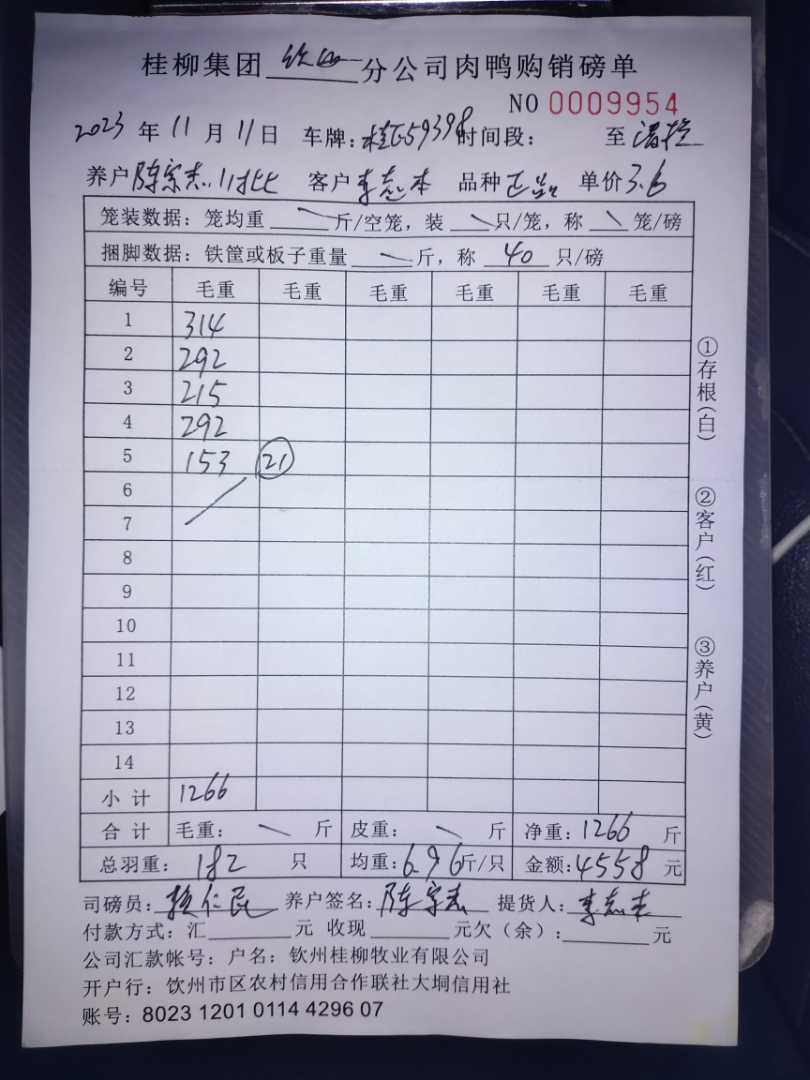 桂柳集团 钦州 分公司肉鸭购销磅单
NO 0009954
2023 年 11 月 11 日 车牌: 桂E59398 时间段: 至
养户 陈宗杰 11批 客户 李志本 品种 正品 单价 3.6
笼装数据: 笼均重 斤/空笼, 装 只/笼, 称 笼/磅
捆脚数据: 铁筐或板子重量 斤, 称 40 只/磅
编号 毛重 毛重 毛重 毛重 毛重 毛重
1 314
2 292
3 215
4 292
5 153 21
6
7
8
9
10
11
12
13
14
小计 1266
合计 毛重: 斤 皮重: 斤 净重: 1266 斤
总羽重: 182 只 均重: 6.96 斤/只 金额: 4558 元
司磅员: 仁民 养户签名: 陈宗杰 提货人: 李志本
付款方式: 汇 元 收现 元欠(余): 元
公司汇款帐号: 户名: 钦州桂柳牧业有限公司
开户行: 饮州市区农村信用合作联社大垌信用社
账号: 8023 1201 0114 4296 07
①存根(白)
②客户(红)
③养户(黄)